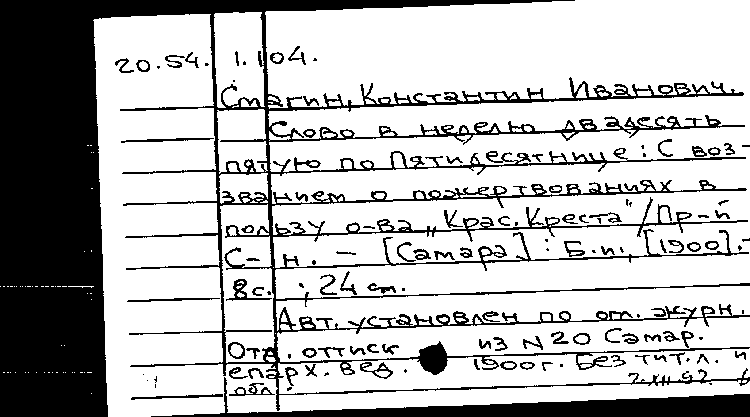 20.54. 1.104.
Смагин, Константин Иванович.
Слово в неделю двадесять
пятую по Пятидесятнице: С воз-
званием о пожертвованиях в
пользу о-ва „Крас. Креста" / Пр-й
С-н. – [Самара]: Б.и., [1900].-
8с. ; 24 см.
Авт. установлен по огл. журн.
Отд. оттиск из N 20 Самар.
епарх. вед. 1900г. Без тит. л. и
обл. 2.XII.92.